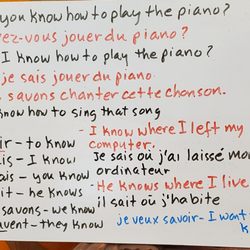 you know how to play the piano?
ez-vous jouer du piano?
I know how to play the piano?
je sais jouer du piano.
savons chanter cette chonson.
know how to sing that song
ir - to know
is - I know
ais - you know
it - he knows
savons - we know
avent - they know
- I know where I left my
computer.
Je sais où j'ai laissé mon
ordinateur
- He knows where I live
il sait où j'habite
je veux savoir - I want